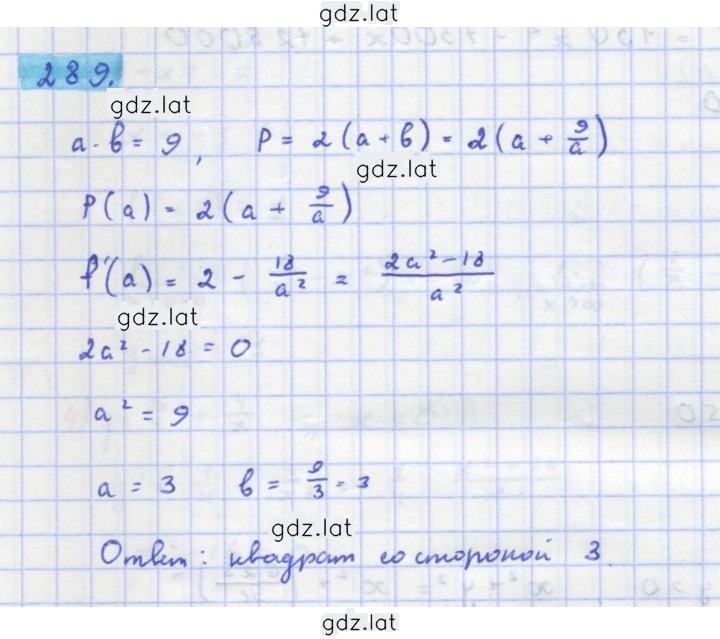 gdz.lat
289.
gdz.lat
a · b = 9, P = 2(a + b) = 2(a + 9/a)
gdz.lat
P(a) = 2(a + 9/a)
P'(a) = 2 - 18/a² = 2a² - 18/a²
gdz.lat
2a² - 18 = 0
a² = 9
a = 3 b = 9/3 = 3
gdz.lat
Ответ: квадрат со стороной 3.
gdz.lat